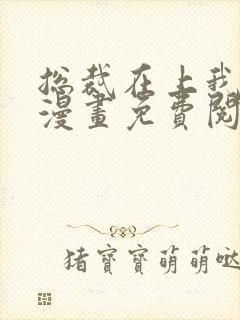 总裁在上我
漫畫免費閱
猪寶寶萌萌哒